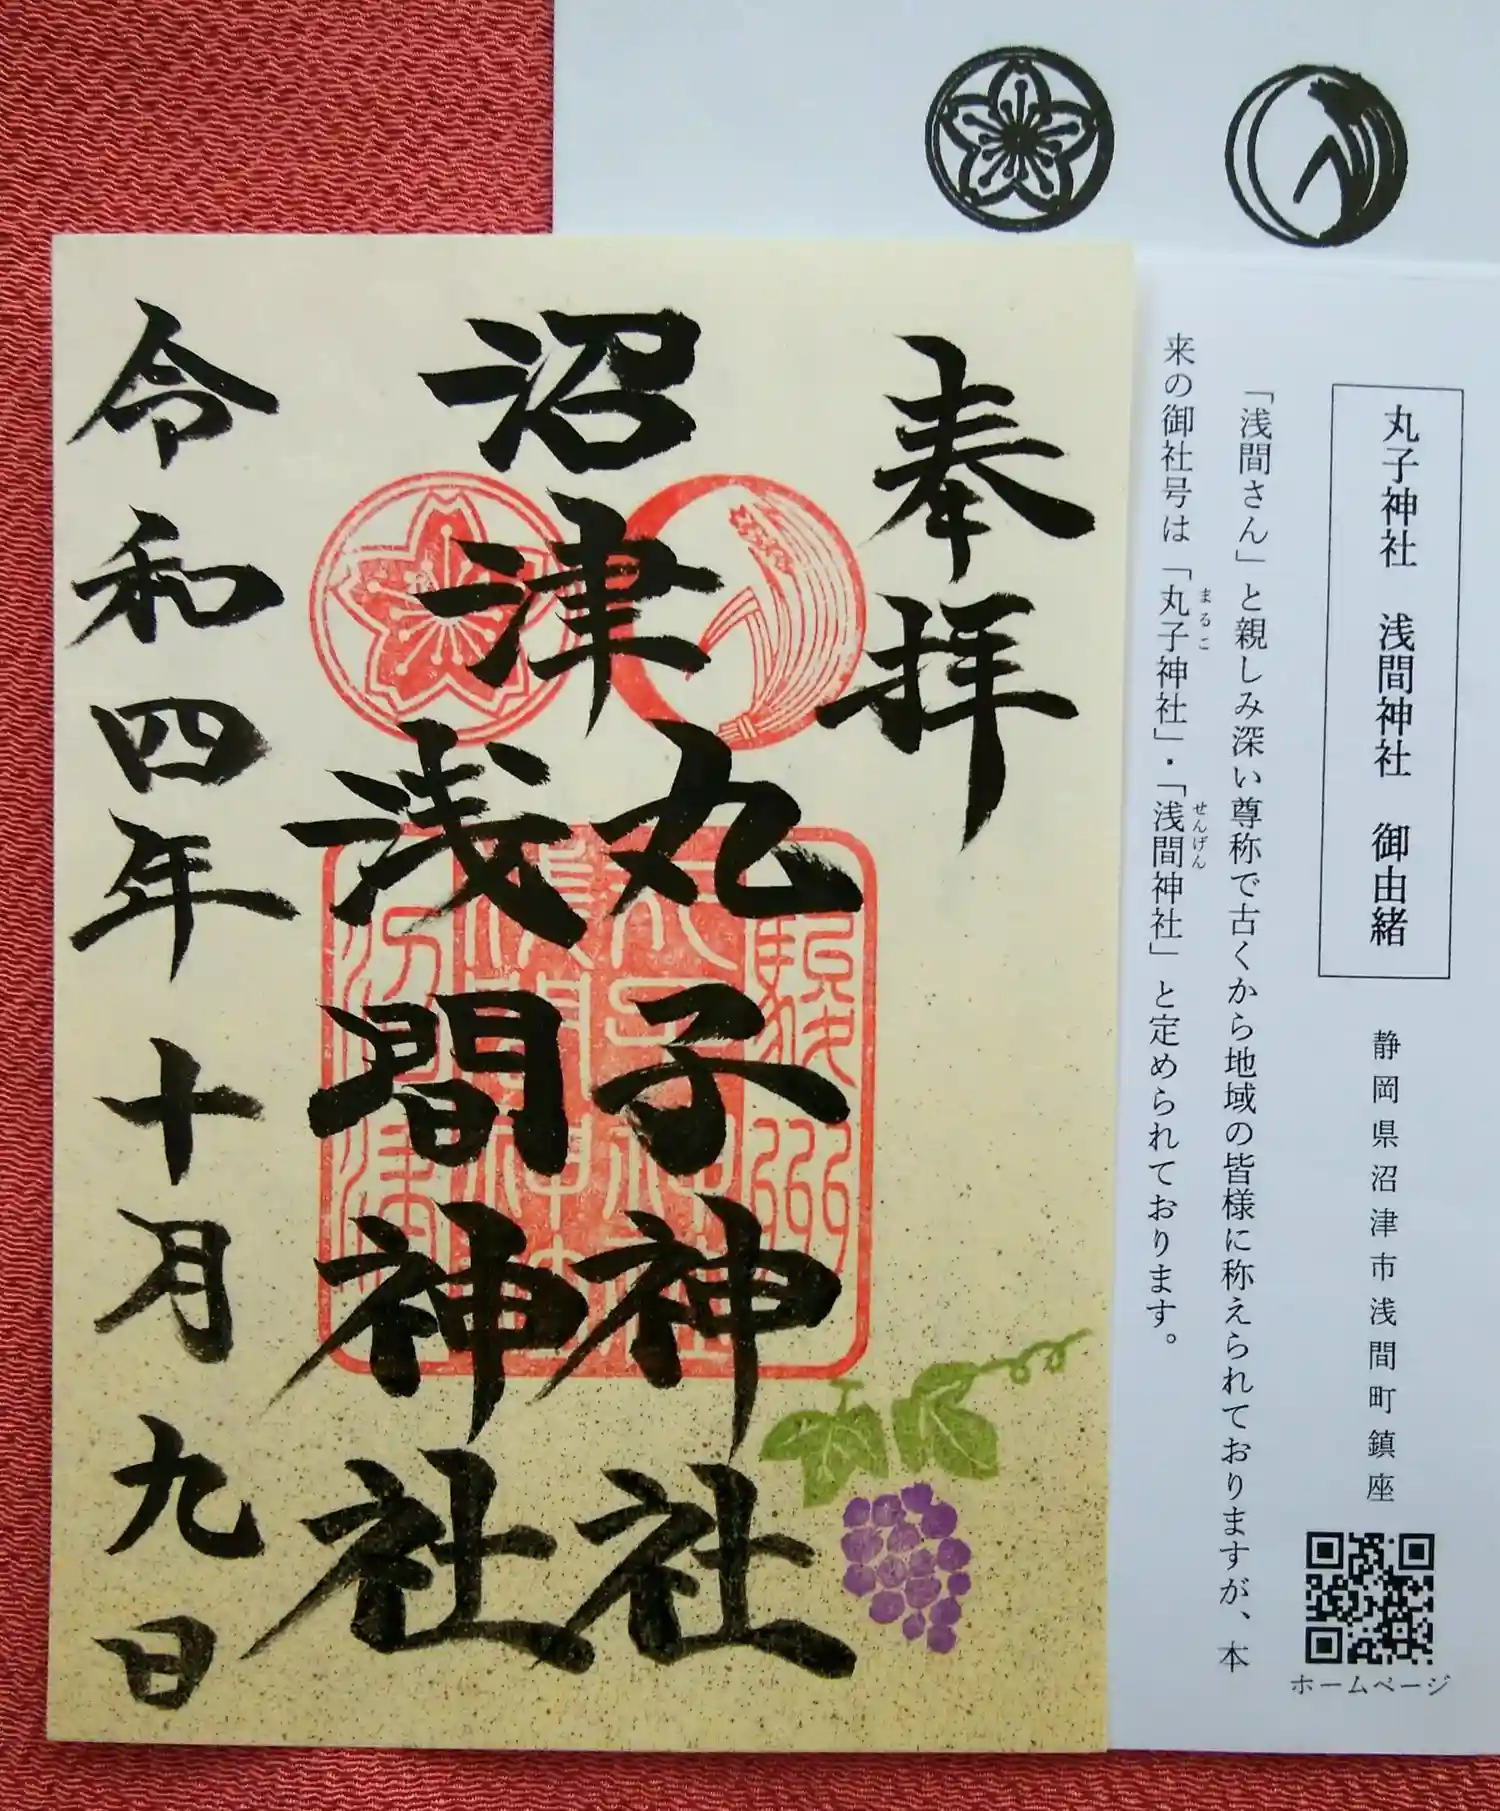 奉拝
沼津
丸子神社
浅間神社
令和四年十月九日
丸子神社 浅間神社 御由緒
静岡県沼津市浅間町鎮座
「浅間さん」と親しみ深い尊称で古くから地域の皆様に称えられておりますが、本
来の御社号は「丸子神社」・「浅間神社」と定められております。
まるこ
せんげん
ホームページ
駿州
丸子神社
浅間神社
沼津